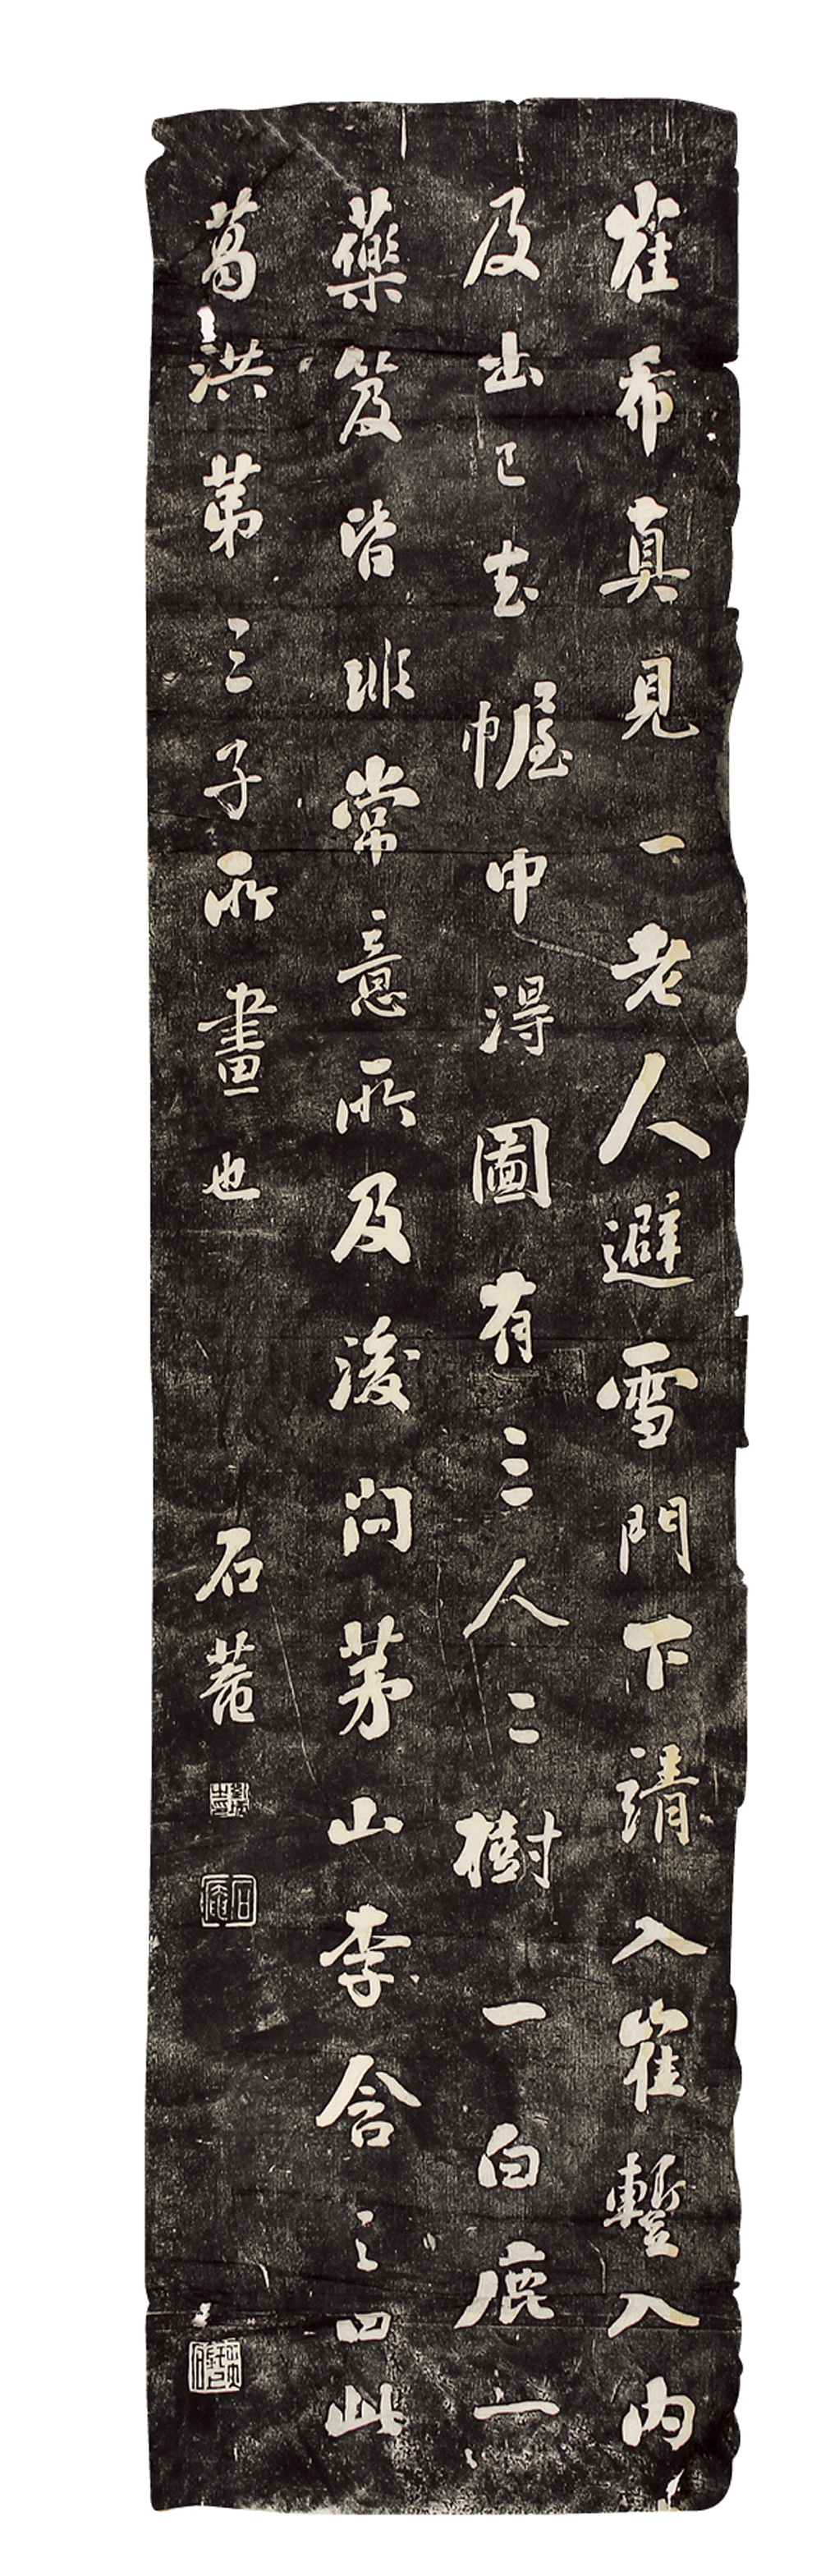 崔希真見一老人避雪門下請入崔暫入内
及出已去幄中得圖有三人二樹一白鹿一
藥笈皆非常意所及後问茅山李含之曰此
葛洪苐三子所畫也
石菴
石菴